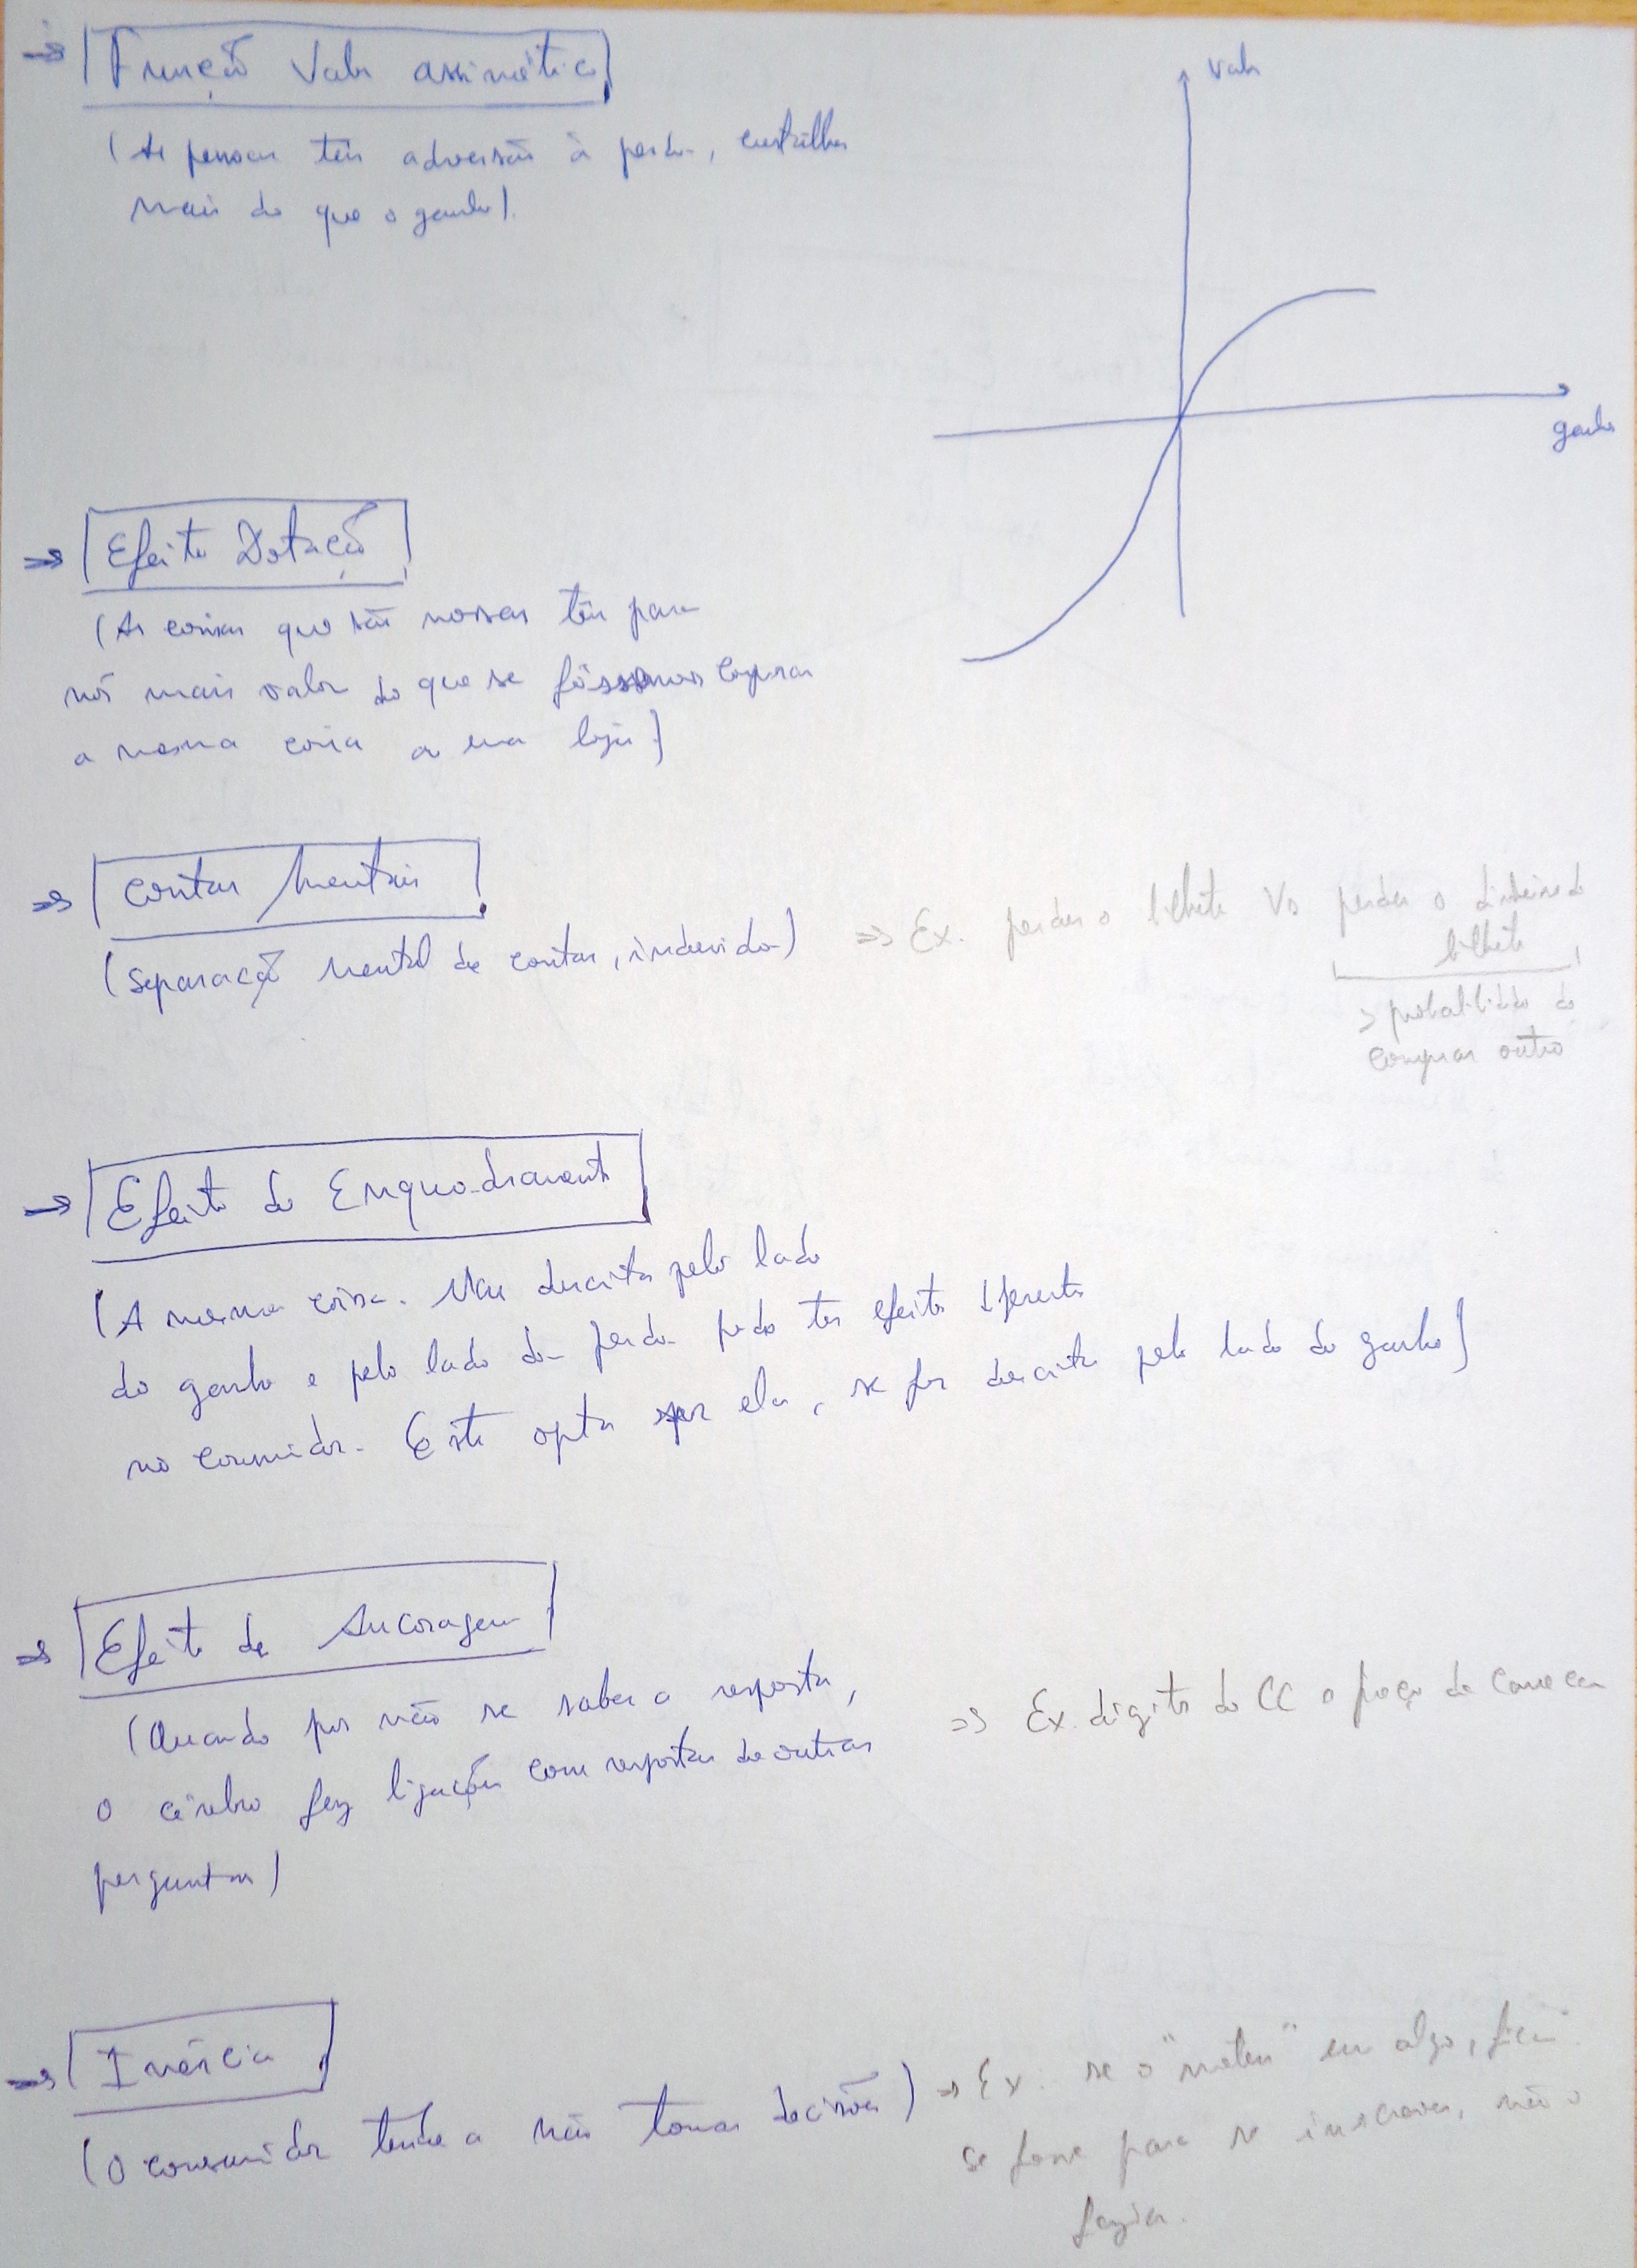 → Função Valor assimétrica
(As pessoas têm adversão à perda, custa-lhes
mais do que o ganho).
Valor
ganho
⇒ Efeito Dotação
(As coisas que são nossas têm para
nós mais valor do que se fôssemos comprar
a mesma coisa a uma loja)
⇒ Contas Mentais
(Separação mental de contas, indevida)
⇒ Ex. perder o bilhete Vs perder o dinheiro do
bilhete
> probabilidade de
comprar outro
→ Efeito do Enquadramento
(A mesma coisa. Mas descrita pelo lado
do ganho e pelo lado da perda pode ter efeitos diferentes
no consumidor. Este opta por ela, se for descrita pelo lado do ganho)
⇒ Efeito de Ancoragem
(Quando por não se saber a resposta,
o cérebro faz ligações com respostas de outras
perguntas)
⇒ Ex. digitos do CC e preço de
⇒ Inércia
(O consumidor tende a não tomar decisões)
⇒ Ex. se o "metem" em algo, fica.
Se fosse para se inscrever, não o
fazia.